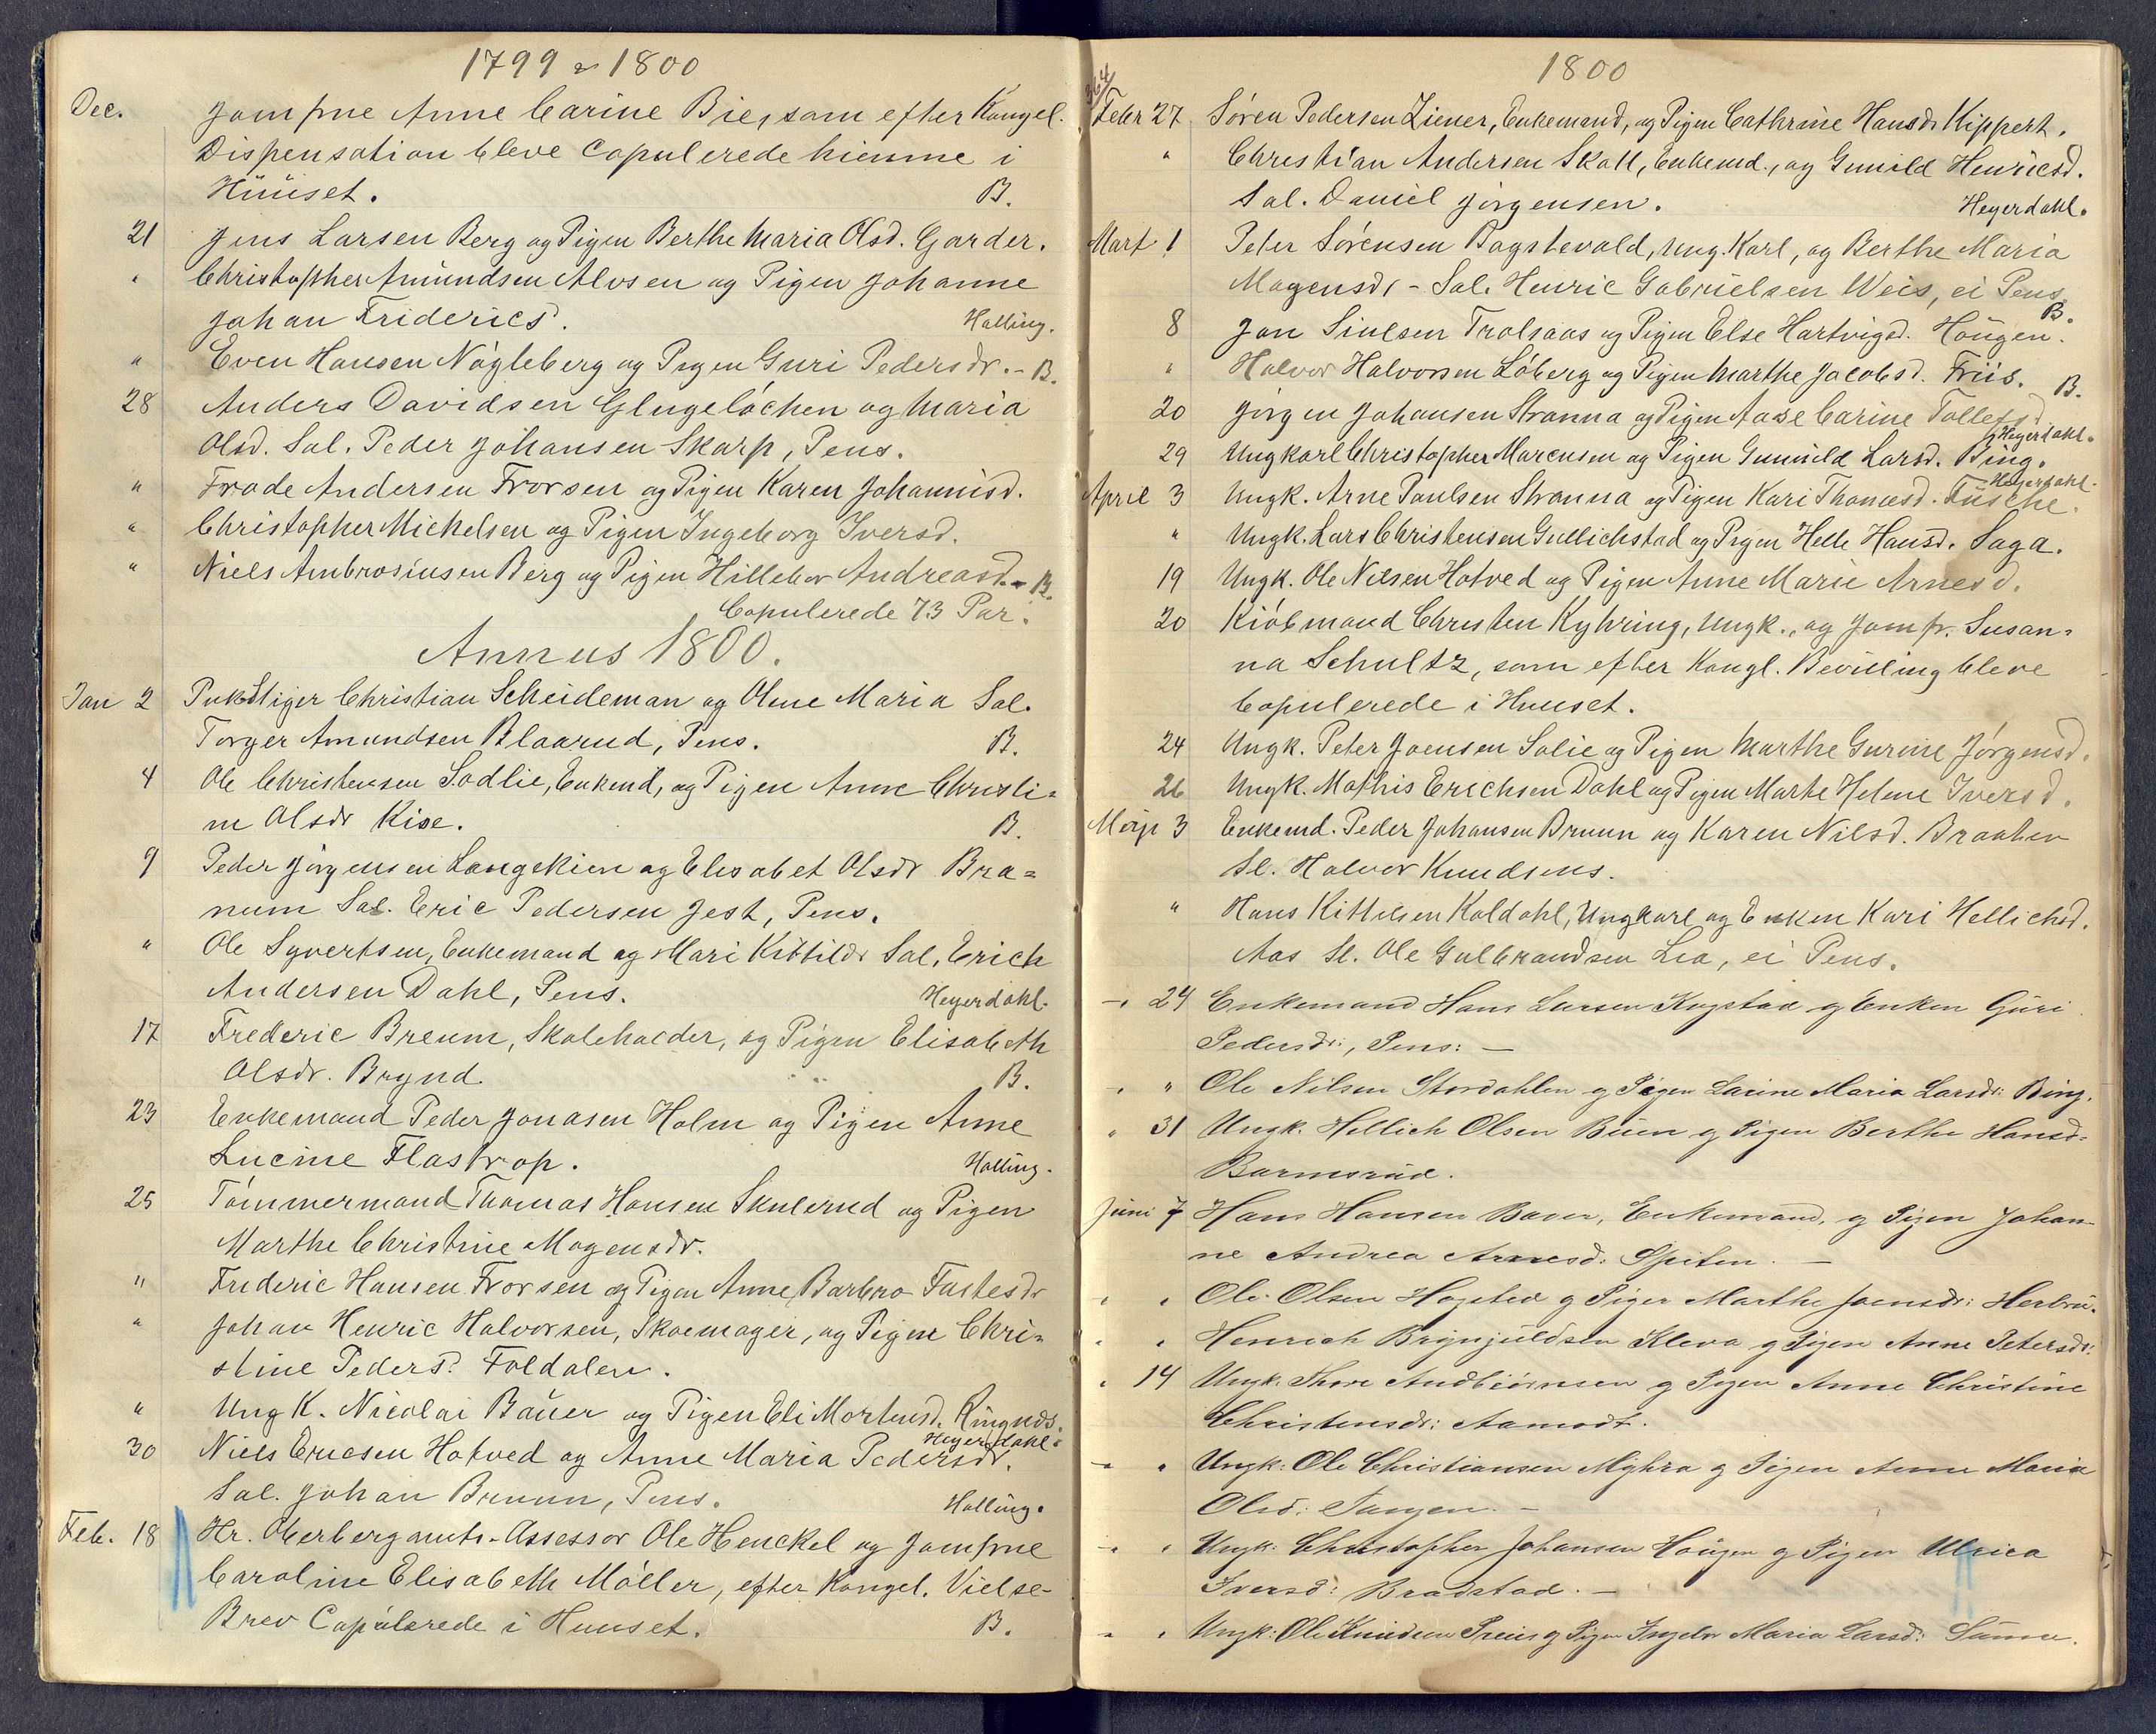 1799 & 1800
Dec. Jomfrue Anne Carine Bie, som efter Kongel.
Dispensation bleve Copulerede hiemme i
Hüüset. B.
21 Jens Larsen Berg og Pigen Berthe Maria Olsd. Garder.
" Christopher Amündsen Alvsen og Pigen Johanne
Johan Friderics. Halling.
" Even Hansen Nøgleberg og Pigen Guri Pedersdr. - B.
28 Anders Davidsen Glugeløchen og Maria
Olsd. Sal. Peder Johansen Skarp, Pens.
" Frode Andersen Frorsen og Pigen Karen Johannisd.
" Christopher Michelsen og Pigen Ingeborg Iversd.
" Niels Ambrosiusen Berg og Pigen Hillebor Andreasd. - B.
Copulerede 73 Par.
Annus 1800.
Jan 2 Pukstiger Christian Scheideman og Olene Maria Sal.
Torger Amundsen Blaarud, Pens. B.
4 Ole Christensen Sodlie, Enkemd, og Pigen Anne Christi=
ne Olsdr Kise. B.
9 Peder Jørgensen Langekien og Elisabet Olsdr Bra=
num Sal. Eric Pedersen Jest, Pens.
" Ole Syvertsen, Enkemand og Mari Kittilds Sal. Erich
Andersen Dahl, Pens. Heyerdahl.
17 Frederic Breum, Skoleholder, og Pigen Elisabeth
Olsdr. Brynd. B.
23 Enkemand Peder Jonasen Holm og Pigen Anne
Lucine Flastrop. Halling.
25 Tømmermand Thomas Hansen Skulerud og Pigen
Marthe Christine Mogensdr.
" Frideric Hansen Frorsen og Pigen Anne Barbro Fastesdr
" Johan Henric Halvorsen, Skoemager, og Pigen Chri=
stine Pedersd. Foldalen.
" Ung K. Nicolai Baüer og Pigen Eli Mortensd. Ringnds.
Heyerdahl.
30 Niels Ericsen Hotved og Anne Maria Pedersdr.
Sal. Johan Bruun, Pens. Halling.
Feb. 18 Hr. Oberbergamts-Assessor Ole Henckel og Jomfrue
Caroline Elisabeth Møller, efter Kongel. Vielse-
Brev Copülerede i Huuset. B.
1800
364
Febr 27 Søren Pedersen Ziener, Enkemand, og Pigen Cathrine Hansdr Kippert.
" Christian Andersen Skall, Enkemd., og Gunild Henricsd.
Sal. Daniel Jørgensen. Heyerdahl.
Mart 1 Peter Sørensen Bagstevold, ung. Karl, og Berthe Maria
Mogensdr - Sal. Henric Gabrielsen Weis, ei Pens
B.
8 Jon Siulsen Trolsaas og Pigen Else Hartvigsd. Hougen.
" Halvor Halvorsen Løberg og Pigen Marthe Jacobsd. Friis. B.
20 Jørgen Johansen Stranna og Pigen Aase Carine Tollefsd.
Heyerdahl.
29 Ungkarl Christopher Marcusen og Pigen Gunnild Larsd. Bing.
Heyerdahl.
April 3 Ungk. Arne Paulsen Stranna og Pigen Kari Thomesd. Füsche.
" Ungk. Lars Christensen Gullichstad og Pigen Helle Hansd. Saga.
19 Ungk. Ole Nilsen Hotved og Pigen Anne Marie Arnesd.
20 Kiøbmand Christen Kyhring, Ungk., og Jomfr. Susan=
na Schultz, som efter Kongl. Bevilling bleve
Copulerede i Huuset.
24 Ungk. Peter Joensen Solie og Pigen Marthe Gurine Jørgensd.
26 Ungk. Mathis Erichsen Dahl og Pigen Marte Helene Iversd.
Maji 3 Enkemd. Peder Johansen Bruun og Karen Nilsd. Braaten
Sl. Halvor Knudsens.
" Hans Kittelsen Koldahl, Ungkarl og Enken Kari Hellichsd.
Aas Sl. Ole Gulbrandsen Lia, ei Pens.
" 24 Enkemand Hans Larsen Kogstad og Enken Güri
Pedersdr:, Pens: —
" " Ole Nilsen Stordahlen og Pigen Larine Maria Larsdr: Bing.
" 31 Ungk. Hellich Olsen Buen og Pigen Berthe Hansd:
Barmsrüd.
Juni 7 Hans Hansen Baver, Enkemand, og Pigen Johan-
ne Andrea Arnesd: Spiten. —
" " Ole Olsen Hogsted og Pigen Marthe Joensdr: Herbrü.
" " Henrich Brynjuldsen Kleva og Pigen Anne Petersdr:
" 14 Ungk. Thore Andbiørnsen og Pigen Anne Christine
Christensdr: Aamodt.
" " Ungk: Ole Christiansen Myhra og Pigen Anne Maria
Olsd: Tangen. —
" " Ungk: Christopher Johansen Hougen og Pigen Ulrica
Iversd: Bradstad. —
" " Ungk: Ole Knudsen Preus og Pigen Ingebor Maria Larsd: Sünne.